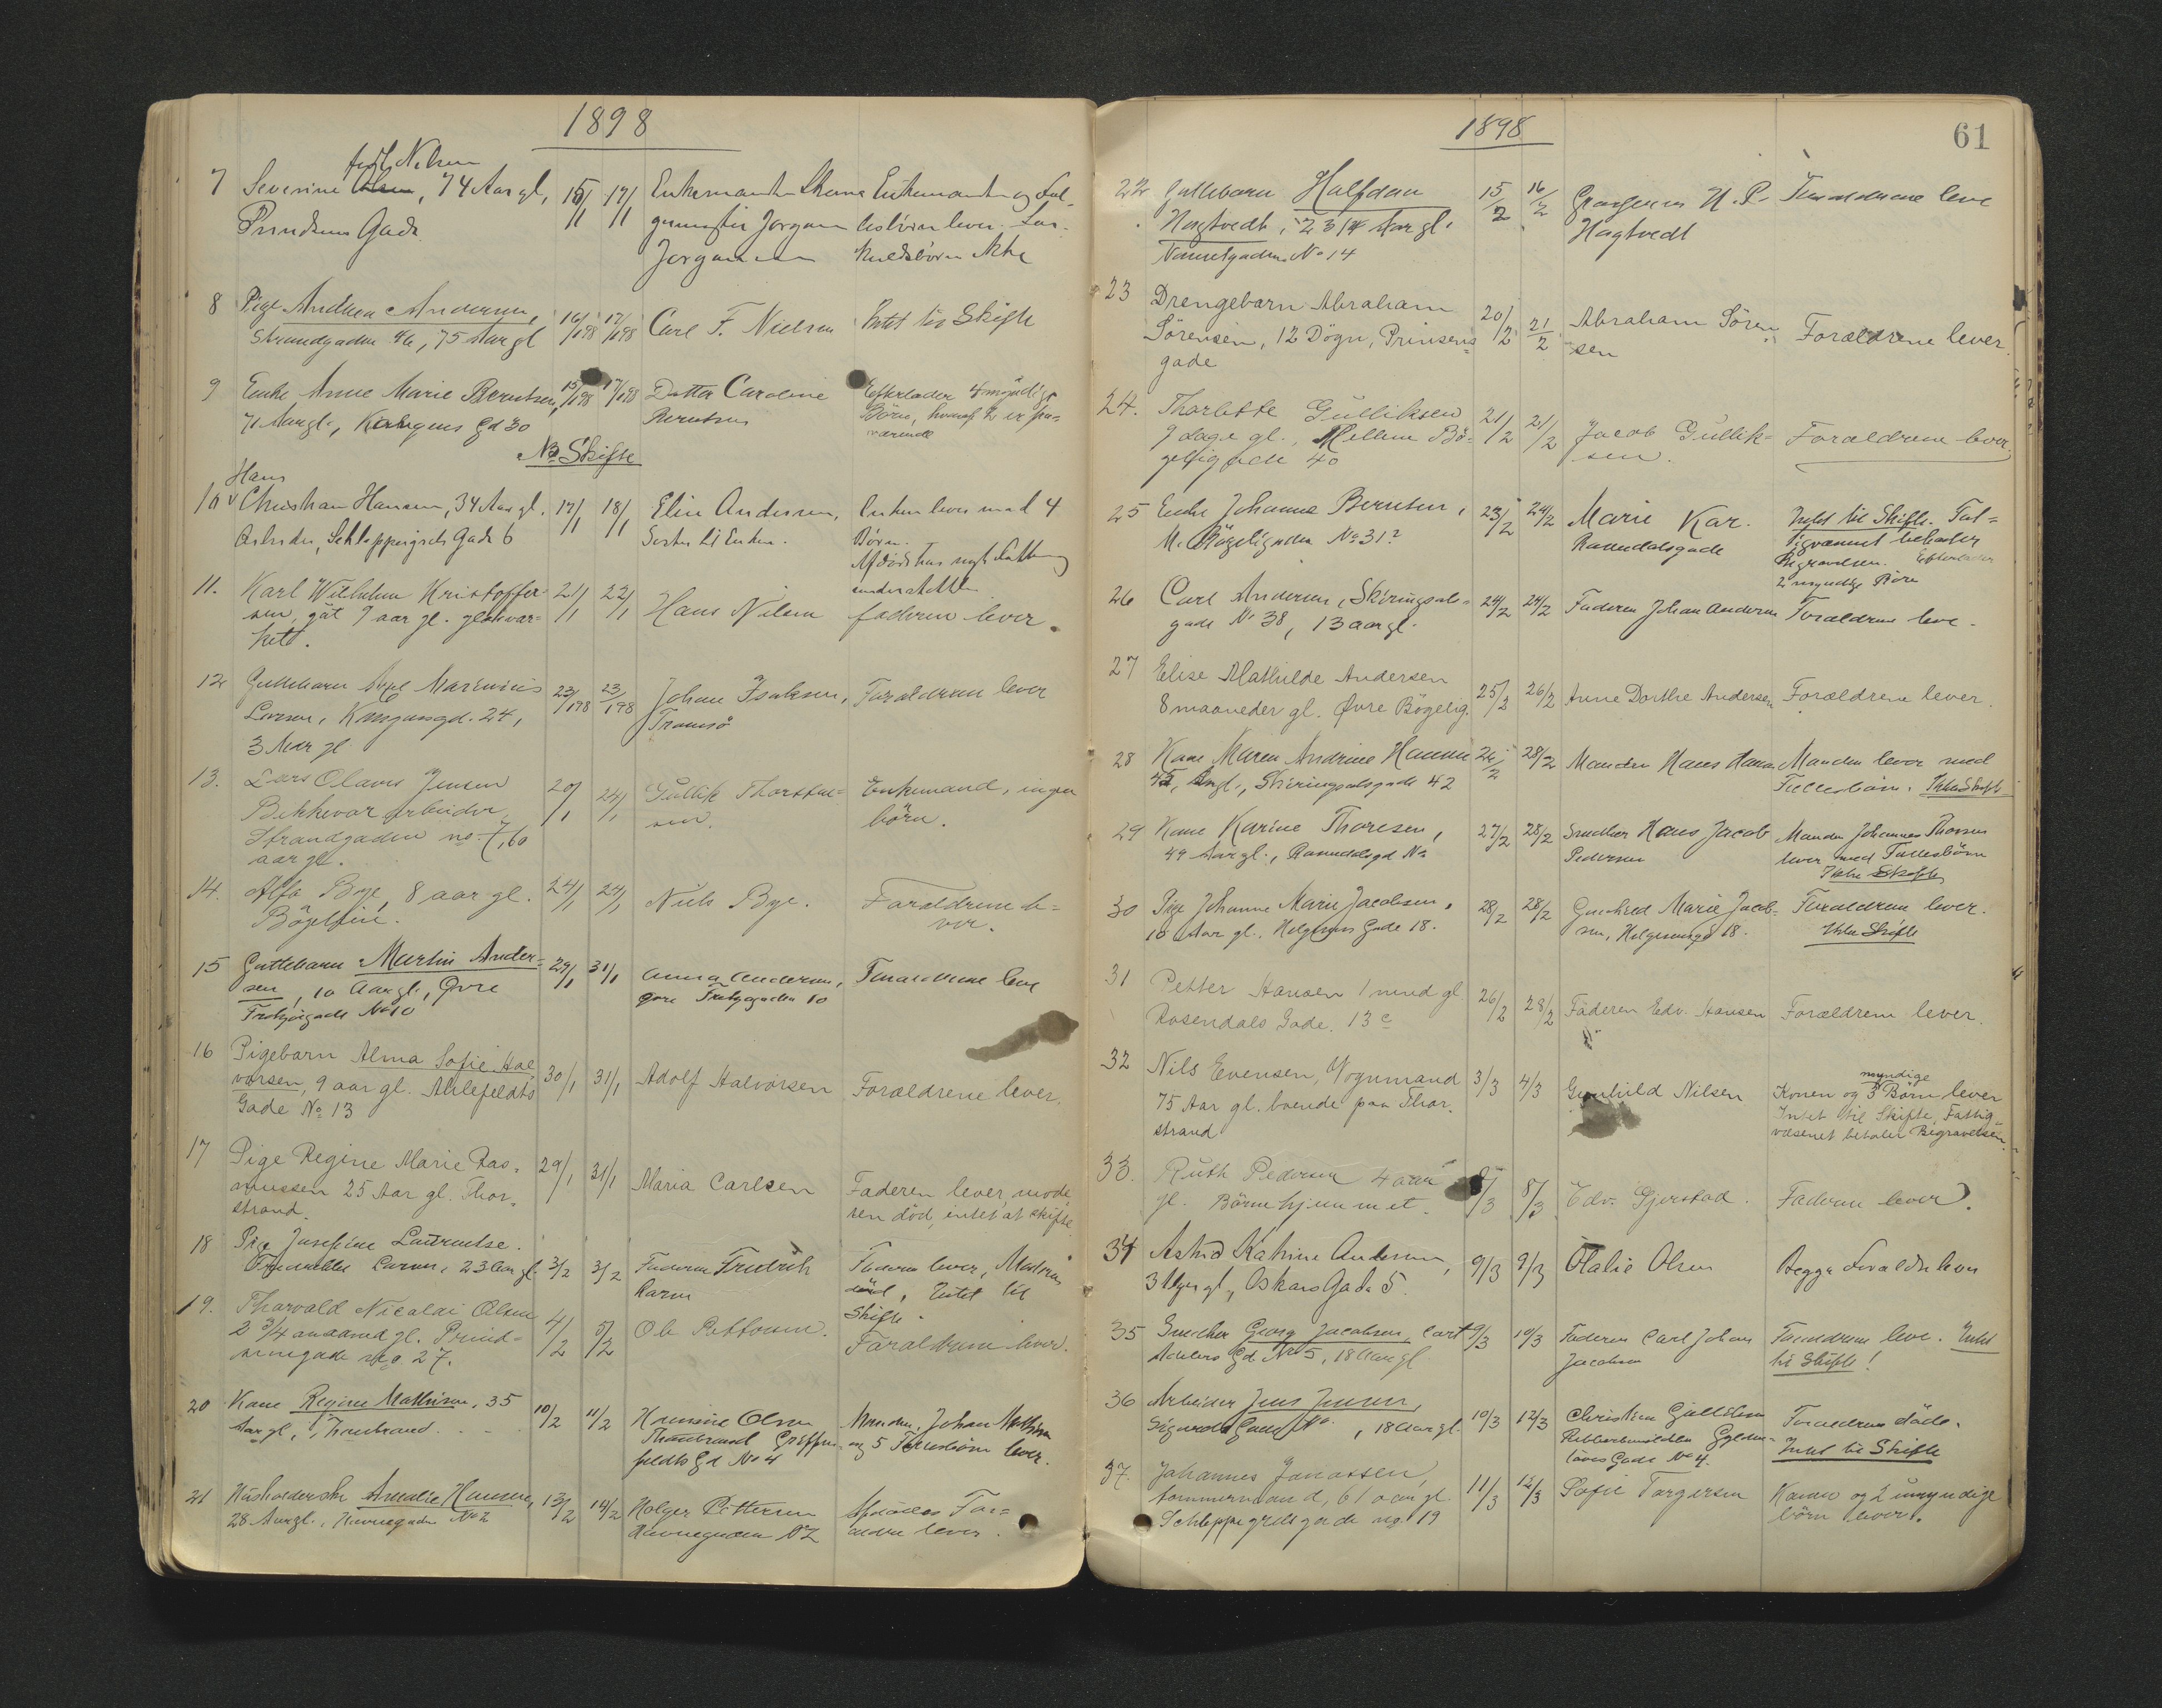 1898
født Nilsen
7 Severine Olsen, 74 Aar gl, 15/1 17/1 Enkemanden
Prindsens Gade. Jørgen Enkemanden og Fæl-
Jørgensen lesbörn lever.
8 Pige Andrea Andersen, 16/1 98 17/1 98 Carl F. Nielsen Intet til Skifte
Strandgaden 46, 75 Aar gl
9 Enke Anne Marie Berntsen, 15/1 98 17/1 98 Datter Caroline Efterlader 4 myndige
71 Aar gl., Kongens Gd 30 Berntsen Börn, hvoraf 2 er fra-
værende
No Skifte
Hans
10 Christian Hansen, 34 Aar gl. 17/1 18/1 Elin Andersen, Enken lever med 4
Arbeider, Schleppegrels Gade 6 Søster til Enken. Börn.
Afdöde har
understöttelse
11. Karl Wilhelm Kristoffer- 21/1 22/1 Hans Nilsen faderen lever.
sen, gut 9 aar gl.
12 Guttebarn Axel Marinius 23/1 98 23/1 98 Johan Isaksen, Forældrene lever
Larsen, Kongensgd. 24, Tromsö
3 Aar gl
13. Lars Olaus Jensen 20/1 24/1 Gullik Thorsten- Enkemand, ingen
Bekkevar arbeider sen. börn.
Strandgaden no 7, 60
aar gl.
14. Alfa Bye, 8 aar gl. 24/1 24/1 Nils Bye. Forældrene le-
Bögelien. ver.
15 Guttebarn Martin Ander- 29/1 31/1 Anna Andersen, Forældrene leve
sen, 10 Aar gl., Øvre øvre Frebergaden 10
No 10
16 Pigebarn Alma Sofie Hal- 30/1 31/1 Adolf Halvorsen Forældrene lever.
vorsen, 9 aar gl. Ahlefeldts
Gade No 13
17 Pige Regine Marie Ras- 29/1 31/1 Maria Carlsen Faderen lever, mode-
mussen 25 Aar gl. Thor- ren död, intet at skifte
strand.
18 Pige Josefine Laurentse. 3/2 3/2 Faderen Fredrik Faderen lever, Moderen
Larsen, 23 Aar gl. Larsen död, Intet til
Skifte.
19. Tharvald Nicolai Olsen 4/2 5/2 Ole Pettersen. Forældrene lever.
2 3/4 gl. Prind-
sensgade no. 27.
20 Kone Regine Mathisen, 35 10/2 11/2 Hansine Olsen Manden, Johan Mathisen
Aar gl, Griffen- og 5 Fællesbörn lever.
feldts Gd No 4
21 Husholderske Amalie Hansen, 13/2 14/2 Holger Pettersen Afdödes For-
28 Aar gl., Havnegaden No 2 Havnegaden No 2 ældre lever.
1898 61
22 Guttebarn Halfdan 15/2 16/2 H. P. Forældrene leve
Hogtvedt, 2 3/4 Aar gl. Hogtvedt
Nansetgaden No 14
23 Drengebarn Abraham 20/2 21/2 Abraham Sören- Forældrene lever.
Sörensen, 12 Dögn, Prinsens- sen
gade
24. Thorlette Gulliksen 21/2 21/2 Jacob Gullik- Forældrene lever.
9 dage gl., Mellem Bö- sen.
geligade 40
25 Enke Johanne Berntsen, 23/2 24/2 Marie Kar. Intet til Skifte. Fat-
M. Bögeligaden No 31? Rosendalsgade tigvæsenet bekoster
Begravelsen. Efterlader
2 myndige Börn
26 Carl Andersen, Skiringsals- 24/2 24/2 Faderen Johan Andersen Forældrene leve.
gade No 38, 13 aar gl.
27 Elise Mathilde Andersen 25/2 26/2 Anne Dorthe Andersen Forældrene lever.
8 maaneder gl. Øvre Bögelig.
28 Kone Maren Andrine Hansen 26/2 28/2 Manden Hans Hansen Manden lever med
45 Aar gl., Skiringsalsgade 42 Fællesbörn. Ikke Skifte
29 Kone Karine Thoresen, 27/2 28/2 Snedker Hans Jacob Manden Johannes Thoresen
49 Aar gl., Rosendalsgd No Pedersen lever med Fællesbörn
Ikke Skifte
30 Pige Johanne Marie Jacobsen, 28/2 28/2 Gunhild Marie Jacob- Forældrene lever.
10 Aar gl. Holgersens Gade 18. sen, 18. Ikke Skifte
31 Petter Hansen 1 mnd gl 26/2 28/2 Faderen Edv. Hansen Forældrene lever.
Rosendals Gade. 13 c
32 Nils Evensen, Vognmand 3/3 4/3 Gunhild Nilsen Konen og 3 myndige Börn lever
75 Aar gl. boende paa Thor- Intet til Skifte, Fattig-
strand væsenet betaler Begravelsen.
33. Ruth Pedersen 4 aar 8/3 Edv. Gjerstad. Faderen lever.
gl. Börnehjemmet.
34 Astrid Katrine Andersen, 9/3 9/3 Otalie Olsen Begge Forældre lever
3 Uger gl., Oskars Gade 5.
35 Snedker Georg Jacobsen, Cort 9/3 10/3 Faderen Carl Johan Forældrene leve. Intet
Adelers Gd No 5, 18 Aar gl Jacobsen til Skifte!
36 Arbeider Jens Jensen, 10/3 12/3 Christian Gulliksen Forældrene döde.
Sigurds Gade No , 18 Aar gl. Gylden- Intet til Skifte
löves Gade No 4.
37. Johannes Jonassen, 11/3 12/3 Sofie Torgersen Konen og 2 umyndige
tömmermand, 61 aar gl. börn lever.
Schleppegrelsgade no. 19